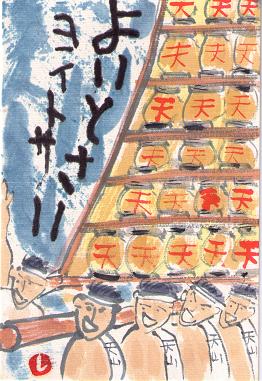 よいとさ!!
ヨイトサ!!
天 天 天
天 天 天
天 天 天
天 天 天
天 天 天 天
天 天 天 天 天
天山 天山 天山
し